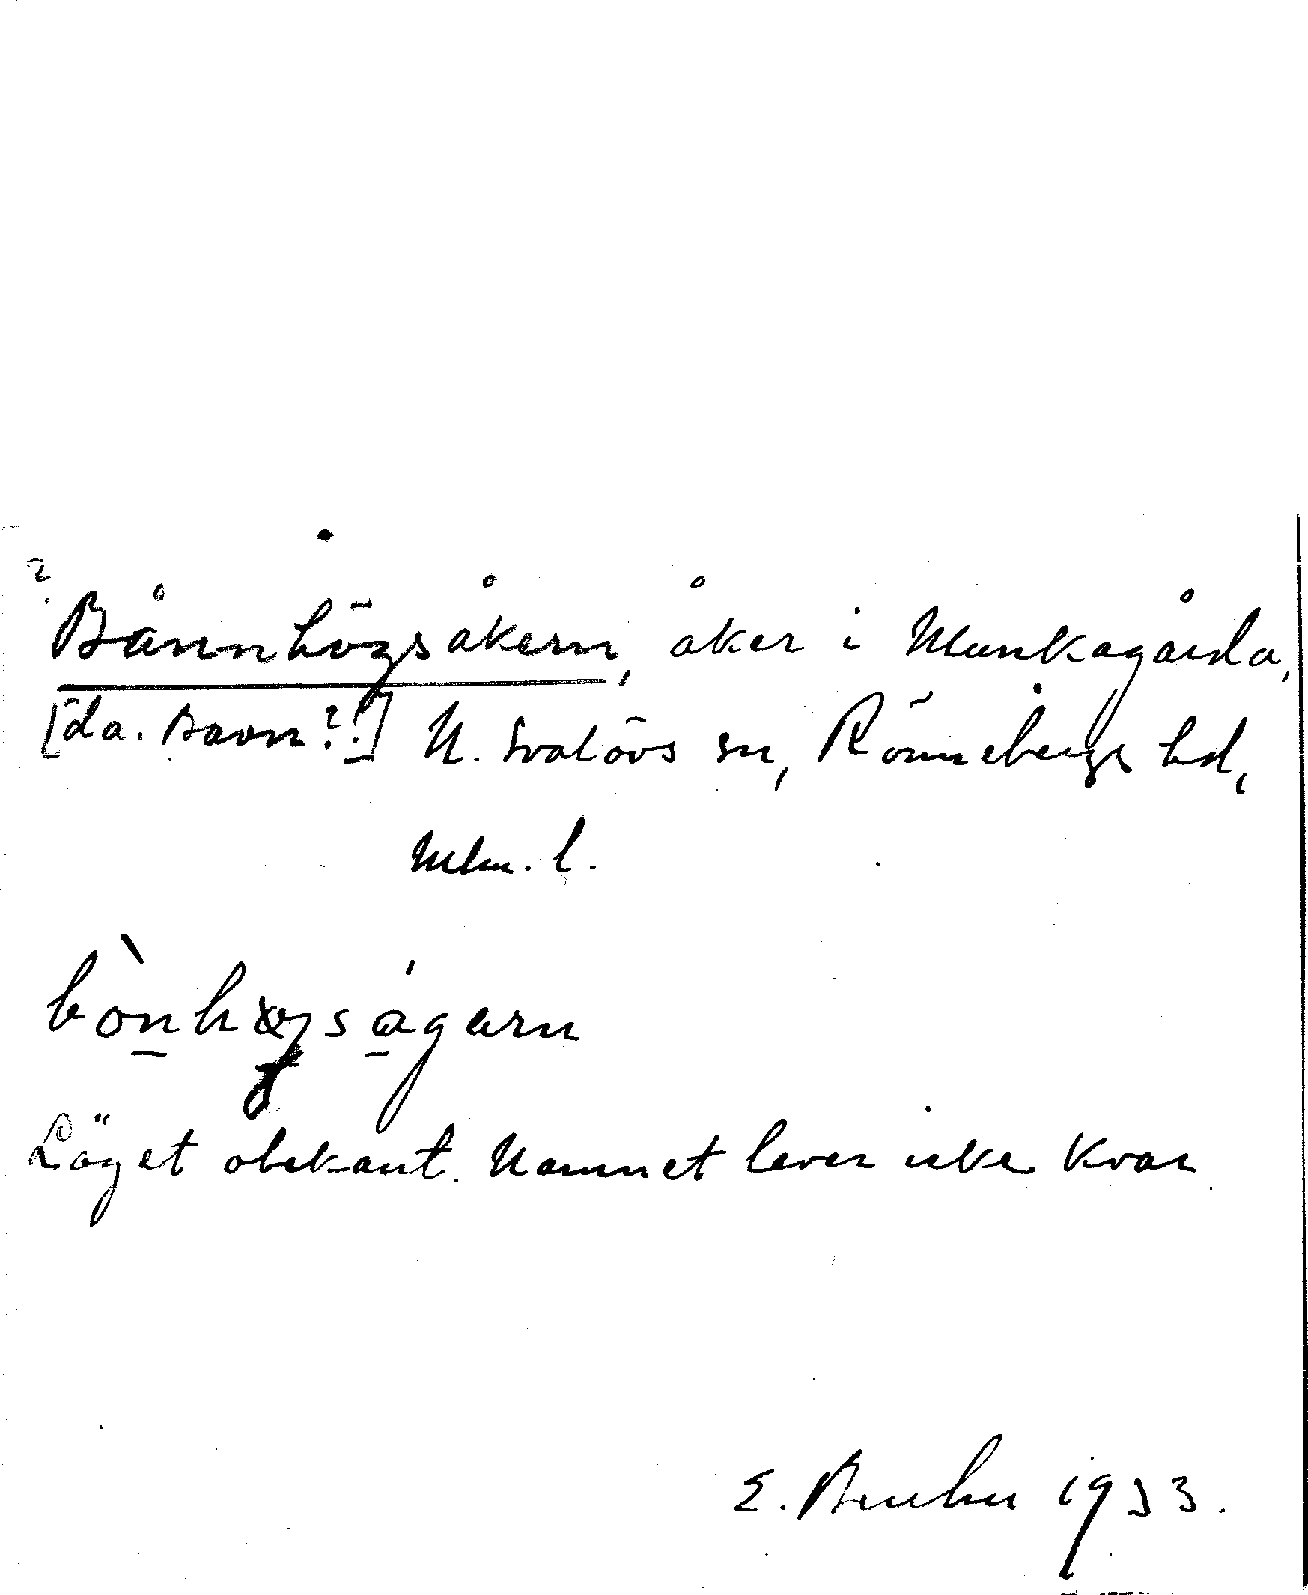 ? Bånnhögsåkern, åker i Munkagårda,
[da. Bavn?!] N. Svalövs sn, Rönnebergs hd,
Mlm. l.
bònhøgságarn
Läget obekant. Namnet lever icke kvar
E. 1933.